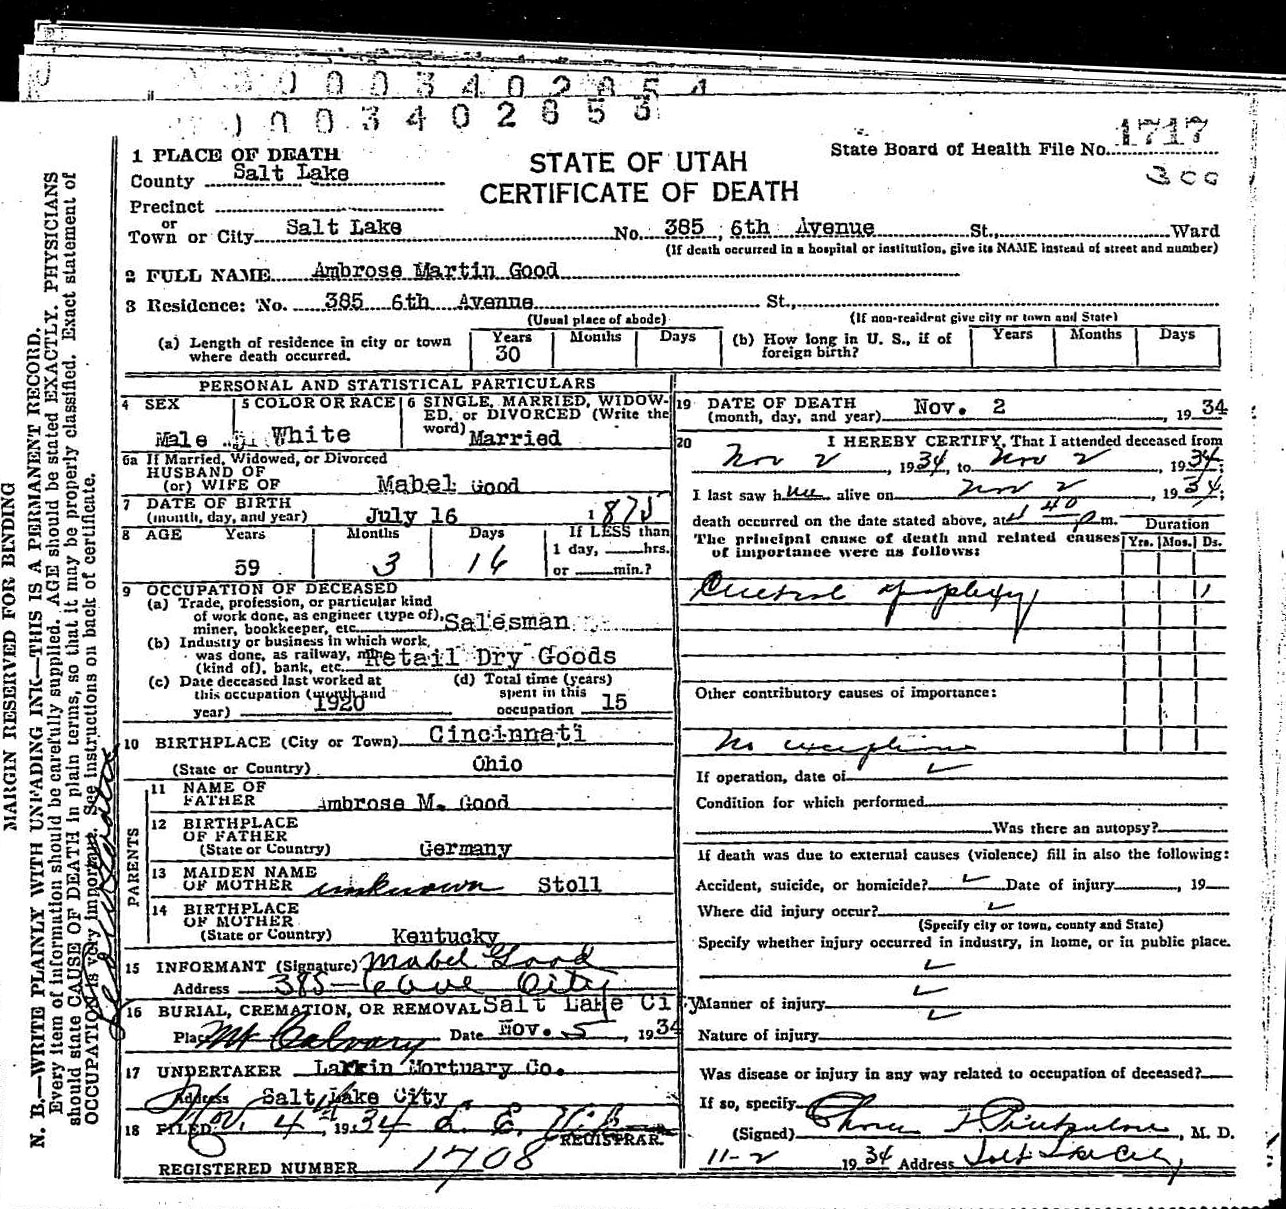 0003402854
0003402853
1717
State Board of Health File No.
300
STATE OF UTAH
CERTIFICATE OF DEATH
1 PLACE OF DEATH
County Salt Lake
Precinct
or
Town or City Salt Lake No. 385, 6th Avenue St., Ward
(If death occurred in a hospital or institution, give its NAME instead of street and number)
2 FULL NAME Ambrose Martin Good
3 Residence: No. 385 6th Avenue St.,
(Usual place of abode) (If non-resident give city or town and State)
(a) Length of residence in city or town where death occurred. Years 30 Months Days (b) How long in U. S., if of foreign birth? Years Months Days
PERSONAL AND STATISTICAL PARTICULARS
4 SEX Male
5 COLOR OR RACE White
6 SINGLE, MARRIED, WIDOW-
ED, or DIVORCED (Write the
word) Married
6a If Married, Widowed, or Divorced
HUSBAND OF
(or) WIFE OF Mabel Good
7 DATE OF BIRTH
(month, day, and year) July 16 1875
8 AGE Years Months Days If LESS than
59 3 16 1 day, hrs.
or min.?
9 OCCUPATION OF DECEASED
(a) Trade, profession, or particular kind
of work done, as engineer (type of),
miner, bookkeeper, etc. Salesman
(b) Industry or business in which work
was done, as railway, mine
(kind of), bank, etc. Retail Dry Goods
(c) Date deceased last worked at
this occupation (month and
year) 1920
(d) Total time (years)
spent in this
occupation 15
10 BIRTHPLACE (City or Town) Cincinnati
(State or Country) Ohio
PARENTS
11 NAME OF
FATHER Ambrose M. Good
12 BIRTHPLACE
OF FATHER
(State or Country) Germany
13 MAIDEN NAME
OF MOTHER unknown Stoll
14 BIRTHPLACE
OF MOTHER
(State or Country) Kentucky
15 INFORMANT (Signature) Mabel Good
Address 385-6 ave City
16 BURIAL, CREMATION, OR REMOVAL Salt Lake City
Place Mt Calvary Date Nov. 5, 1934
17 UNDERTAKER Larkin Mortuary Co.
Address Salt Lake City
18 FILED Nov. 4th 1934
REGISTRAR.
REGISTERED NUMBER 1708
19 DATE OF DEATH
(month, day, and year) Nov. 2, 1934
20 I HEREBY CERTIFY, That I attended deceased from
Nov 2, 1934, to Nov 2, 1934;
I last saw him alive on Nov 2, 1934;
death occurred on the date stated above, at 40 p m.
Duration
The principal cause of death and related causes
of importance were as follows: Yrs. Mos. Ds.
Cerebral apoplexy 1
Other contributory causes of importance:
No exceptions
If operation, date of
Condition for which performed
Was there an autopsy?
If death was due to external causes (violence) fill in also the following:
Accident, suicide, or homicide? Date of injury, 19
Where did injury occur?
(Specify city or town, county and State)
Specify whether injury occurred in industry, in home, or in public place.
Manner of injury
Nature of injury
Was disease or injury in any way related to occupation of deceased?
If so, specify
(Signed), M. D.
11-2 1934 Address Salt Lake City
MARGIN RESERVED FOR BINDING
N. B.—WRITE PLAINLY WITH UNFADING INK—THIS IS A PERMANENT RECORD.
Every item of information should be carefully supplied. AGE should be stated EXACTLY. PHYSICIANS
should state CAUSE OF DEATH in plain terms, so that it may be properly classified. Exact statement of
OCCUPATION is very important. See instructions on back of certificate.